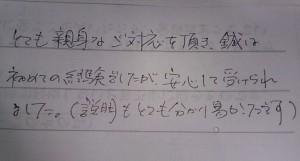 とても親身なご対応を頂き、鍼は
初めての経験でしたが、安心して受けられ
ました。(説明もとても分かり易かったです)